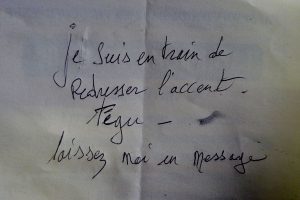 je suis en train de
Redresser l'accent.
Tégu -
laissez moi un message